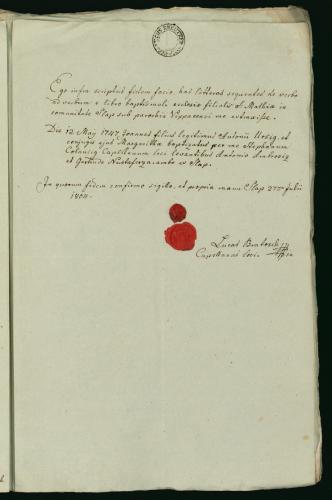 Ego infra scriptus fidem facio, has litteras sequentes de verbo
ad verbum e libro baptismali ecclesiæ filialis S. Mathiæ in
comunitate Slap sub parochia Vippacensi me extraxisse.
Die 12 Maij 1747 Joannes filius legitimus Antonii Ursig, et
conjugis ejus Margaritha baptizatus per me Stephanum
Capellanum loci levantibus Antonio Ambrosig
et Gertrude ex Slap.
In quorum fidem confirmo sigillo, et propria manu Slap 27ma Julii
1804.
Lucas
Capellanus loci